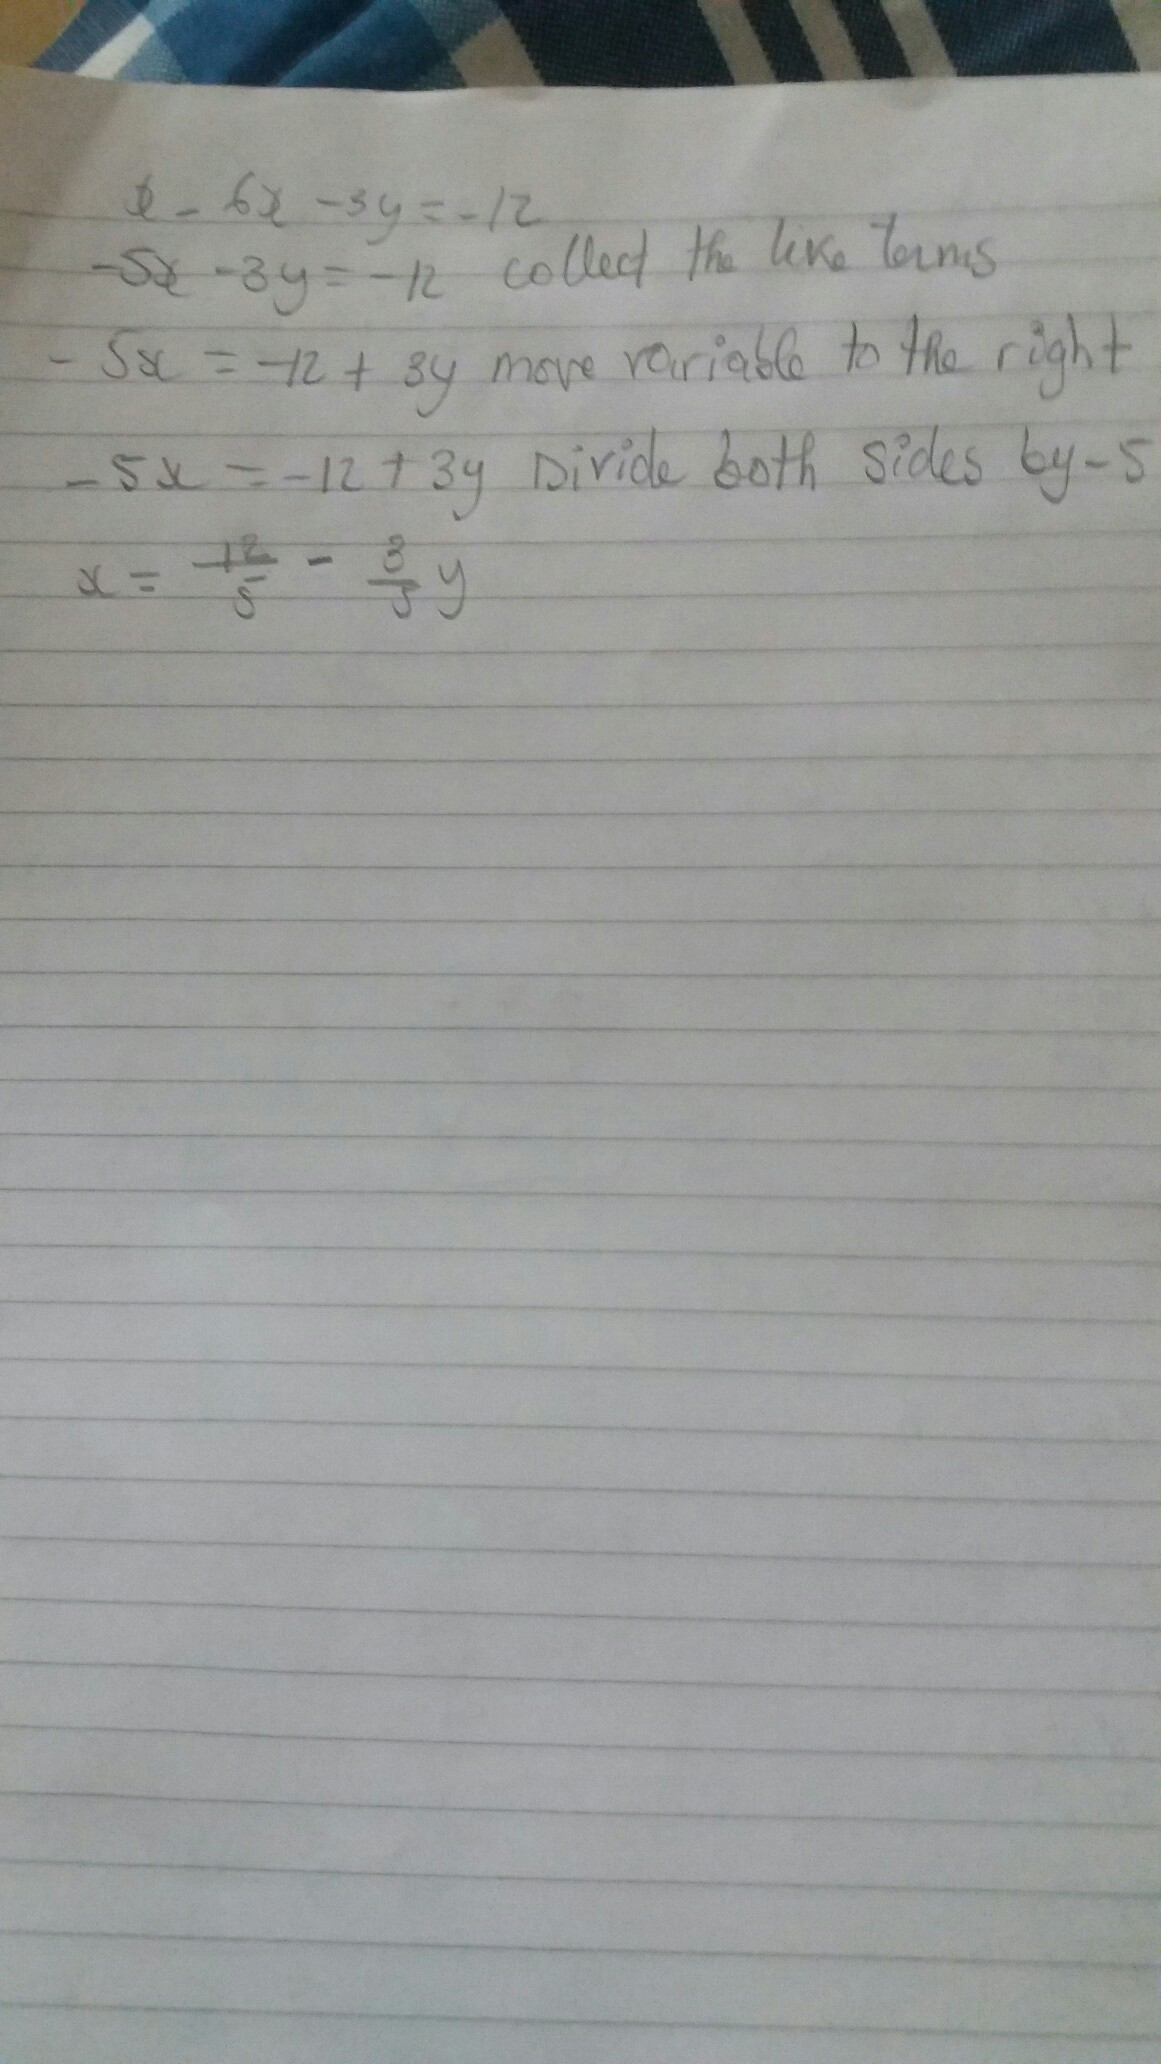 x - 6x - 3y = -12
-5x - 3y = -12 collect the like terms
- 5x = -12 + 3y move variable to the right
- 5x = -12 + 3y Divide both sides by -5
x = 12/5 - 3/5 y